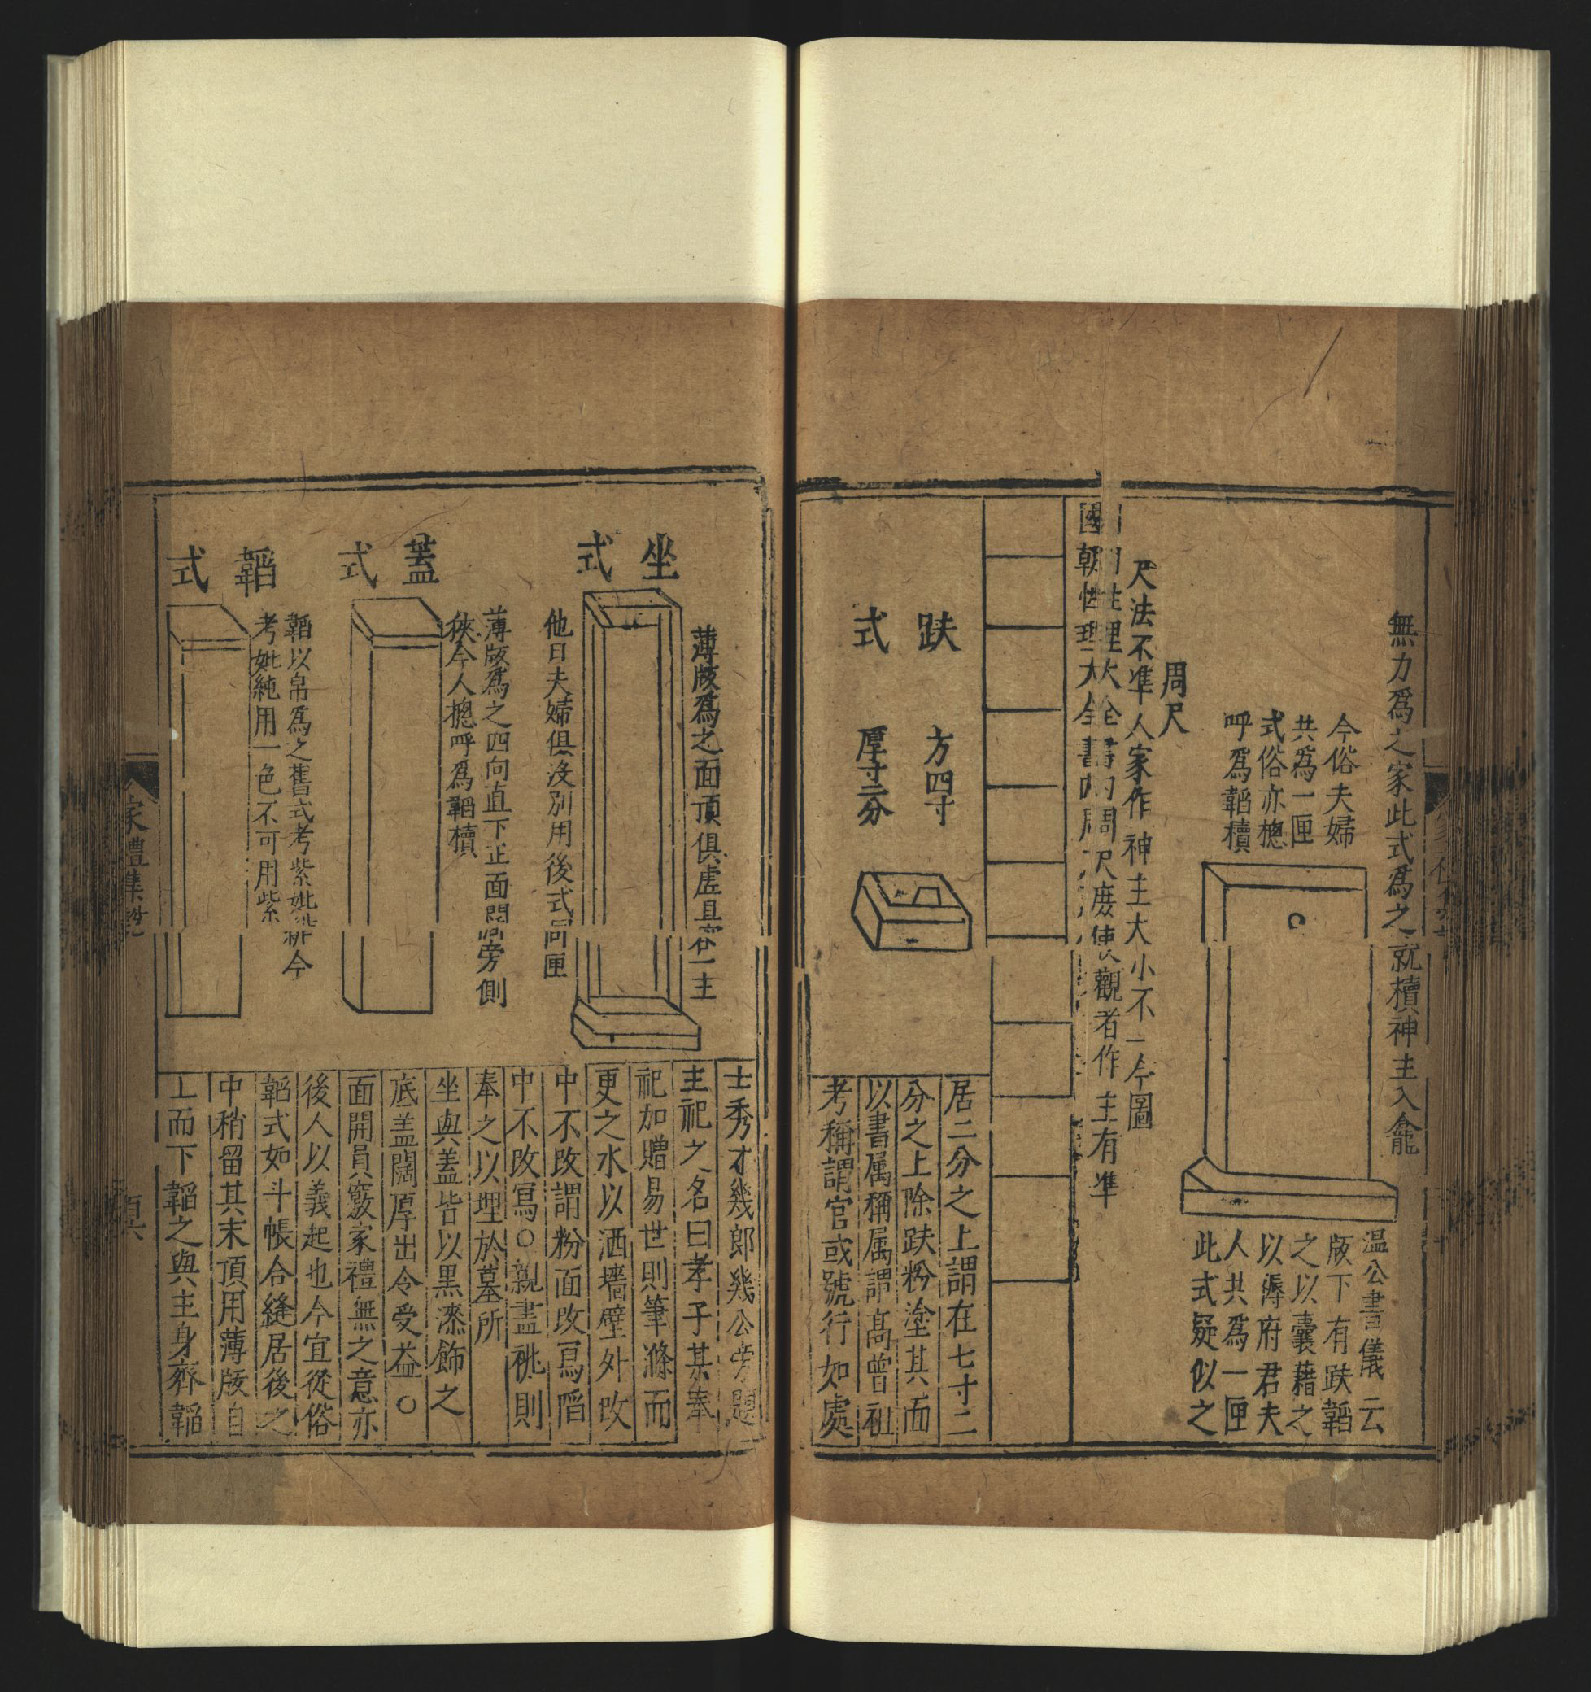 無力爲之家此式爲之就櫝神主入龕
今俗夫婦
共爲一匣
式俗亦㮣
呼爲韜櫝
温公書儀云
版下有趺韜
之以囊藉之
以褥府君夫
人共爲一匣
此式疑似之
周尺
尺法不準人家作神主大小不一今圖
國朝性理大全書內周尺度使觀者作主有準
趺式
方四寸
厚寸二分
居二分之上謂在七寸二
分之上除趺粉塗其面
以書属稱属謂高曾祖
考稱謂官或號行如處
士秀才幾郎幾公旁題
主祀之名曰孝子某奉
祀加贈易世則筆滌而
更之水以洒墻壁外改
中不改謂粉面改寫陷
中不改寫○親盡祧則
奉之以埋於墓所
坐式
薄版爲之面頂俱虚且容一主
他日夫婦俱没别用後式同匣
蓋式
薄版爲之四向直下正面開旁側
狹今人摠呼爲韜櫝
韜式
韜以帛爲之舊式考紫妣緋今
考妣純用一色不可用紫
坐與蓋皆以黑漆飾之
底盖闊厚出令受盖○
面開員竅家禮無之意亦
後人以義起也今宜從俗
韜式如斗帳合縫居後之
中稍留其末頂用薄版自
上而下韜之與主身齊韜
家禮集說